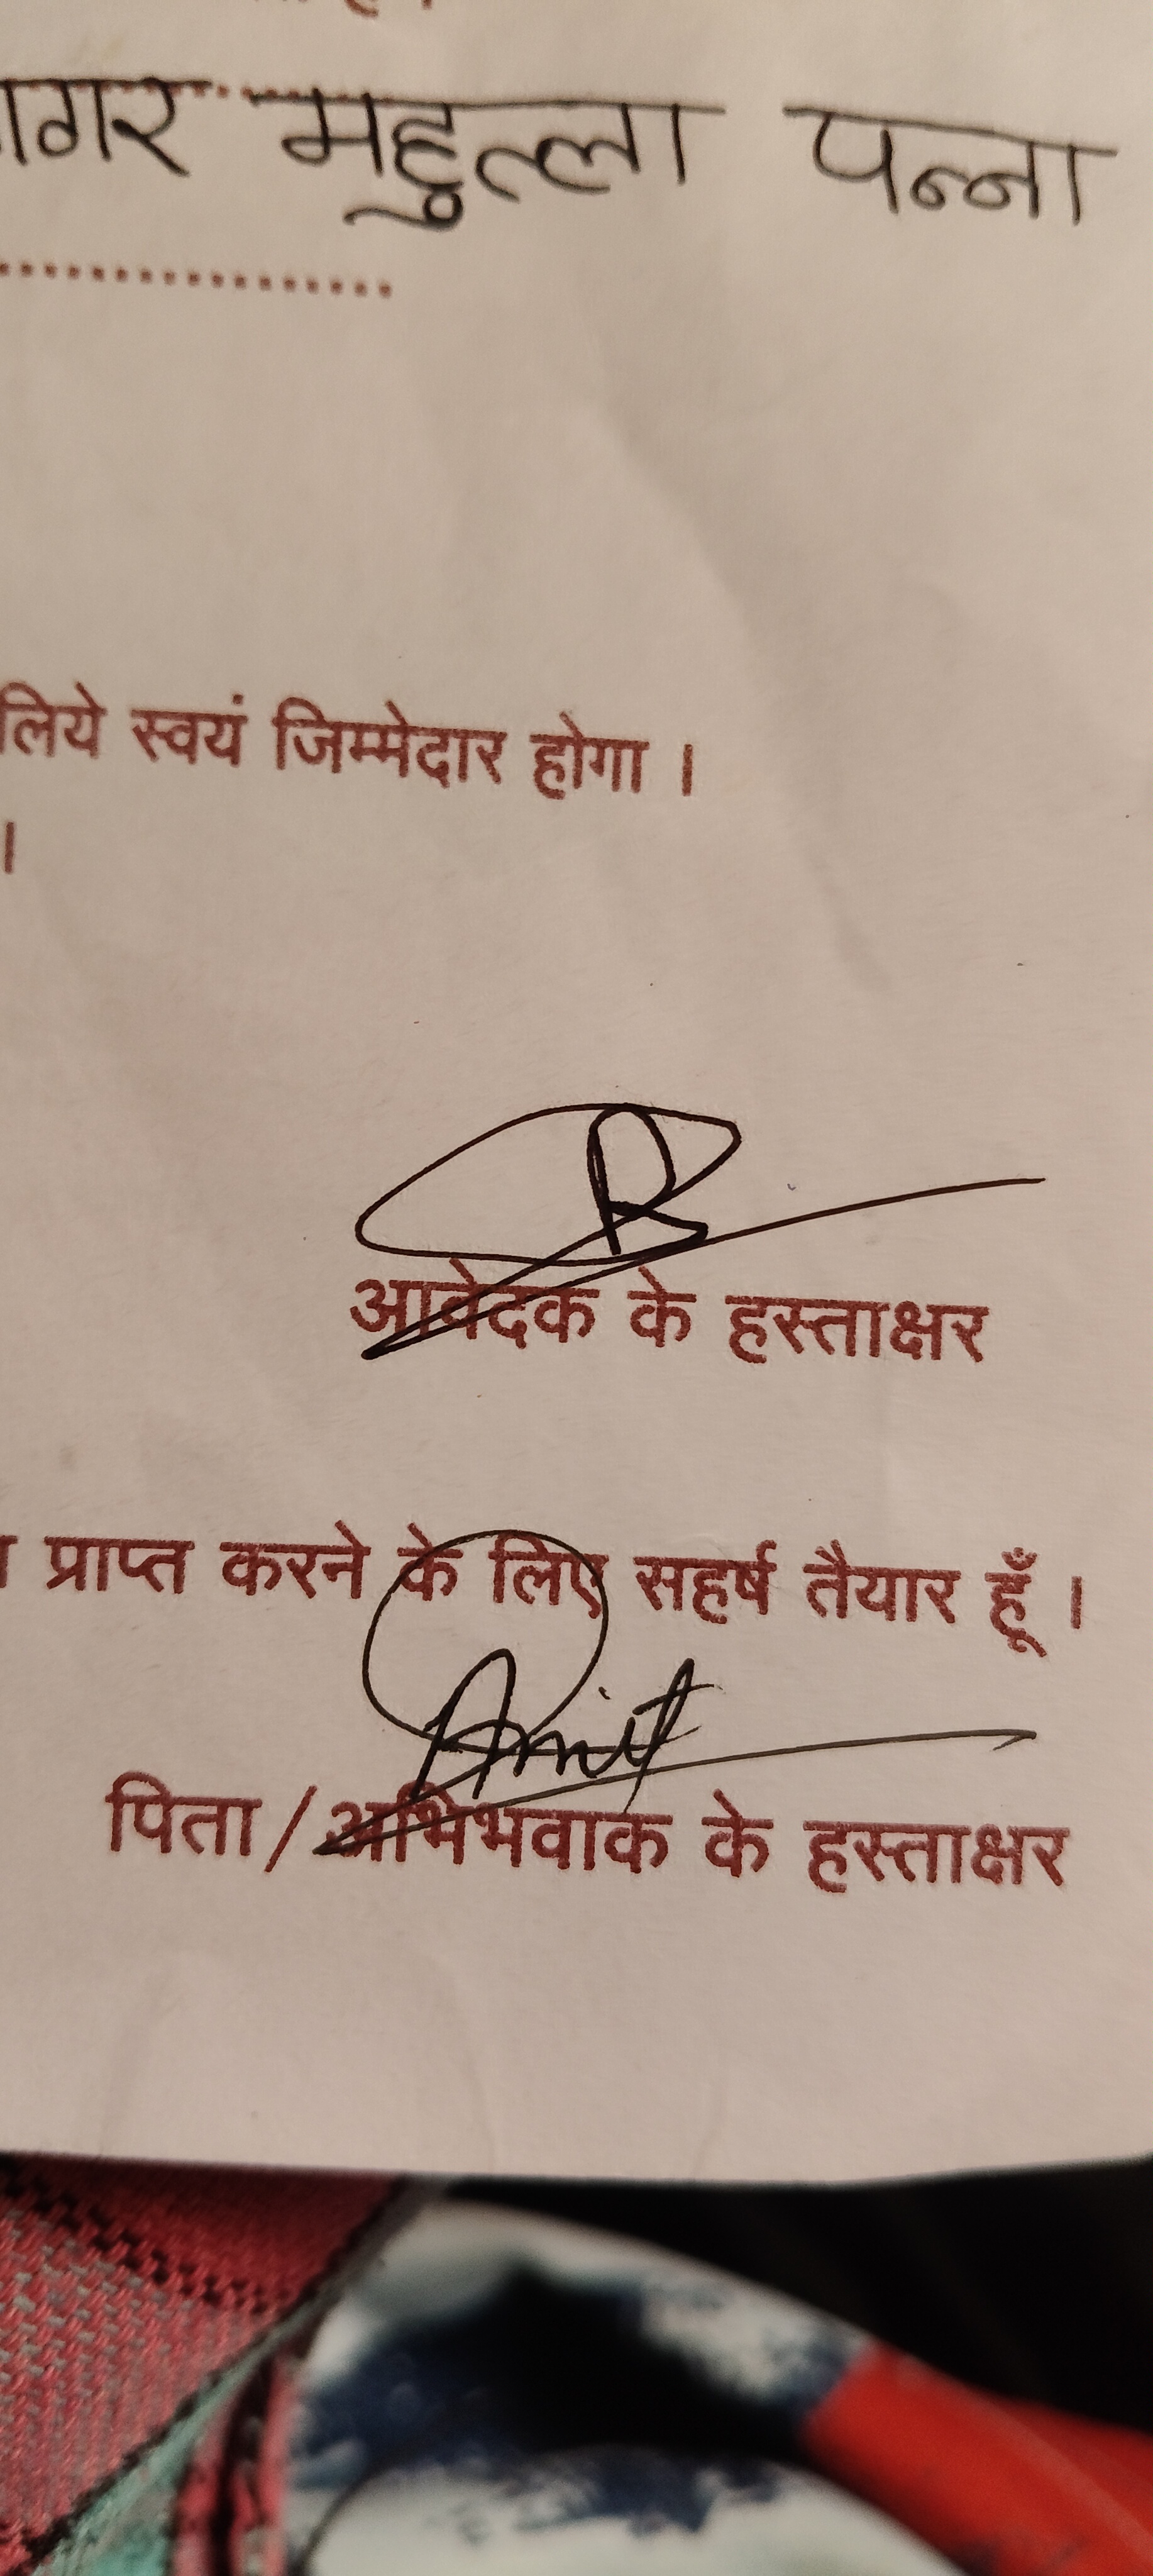 ागर महुल्ला पन्ना
लिये स्वयं जिम्मेदार होगा ।
।
R
आवेदक के हस्ताक्षर
प्राप्त करने के लिए सहर्ष तैयार हूँ ।
Amit
पिता/अभिभवाक के हस्ताक्षर